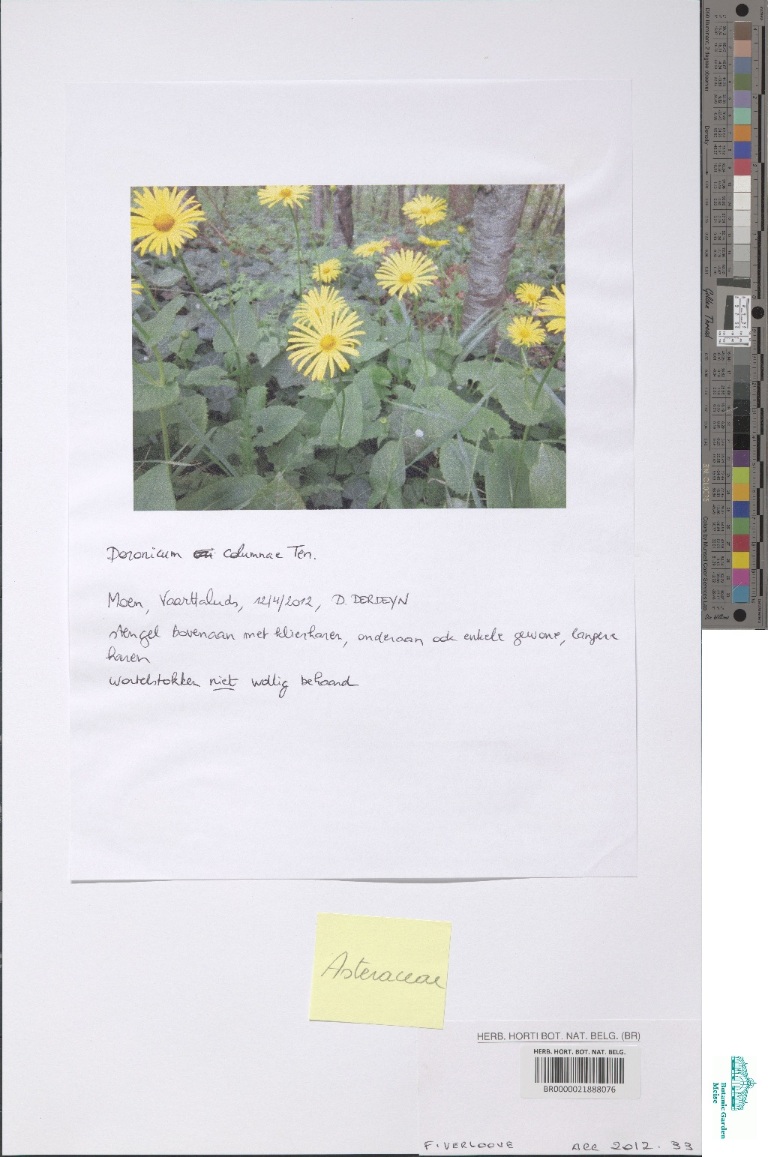 Doronicum columnae Ten.
Moen, Vaarttaluds, 12/4/2012, D. DERDEYN
stengel bovenaan met klierharen, onderaan ook enkele gewone, langere
haren
wortelstokken niet wollig behaard
Asteraceae
HERB. HORTI BOT. NAT. BELG. (BR)
HERB. HORT. BOT. NAT. BELG.
BR0000021888076
F. VERLOOVE ARR 2012. 33
Botanic Garden
Meise